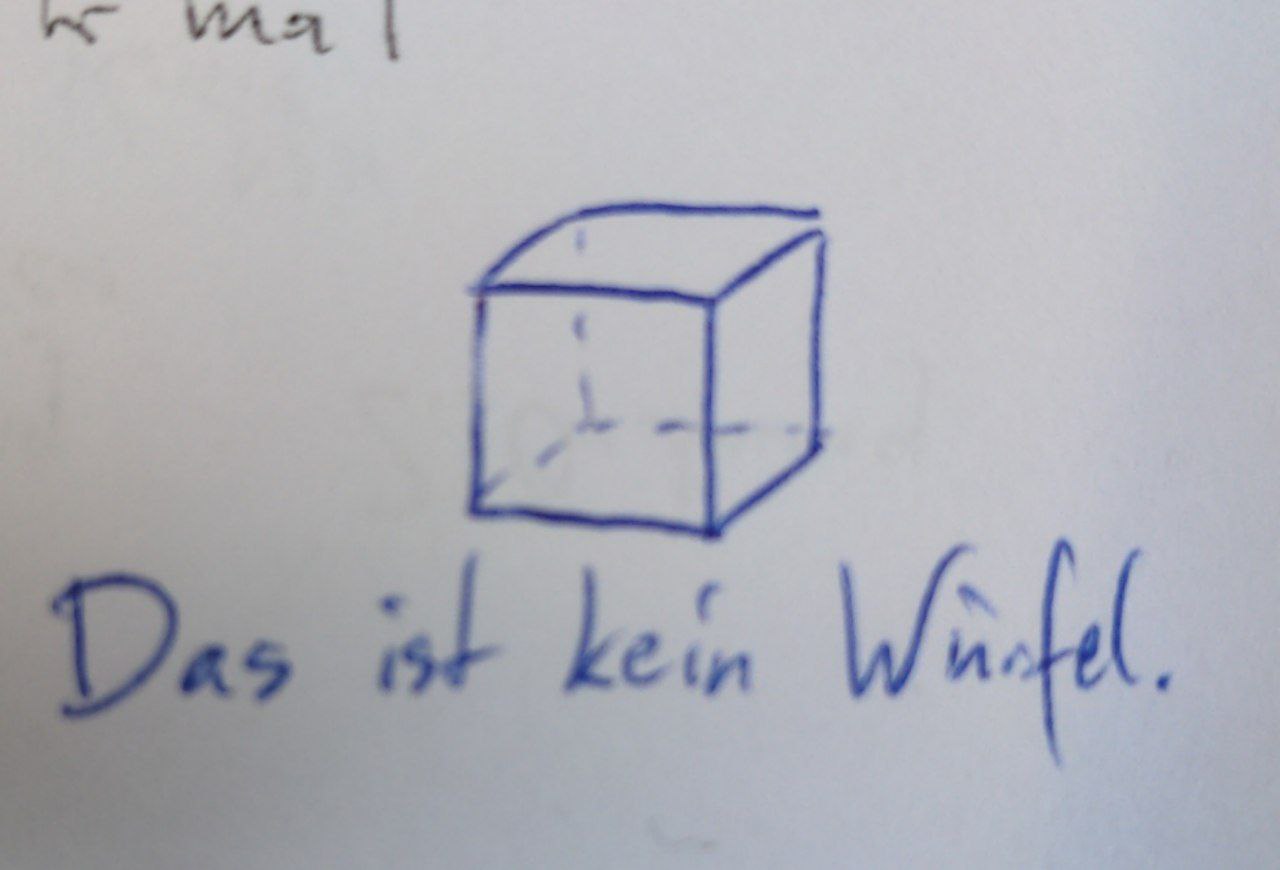 mal
Das ist kein Würfel.